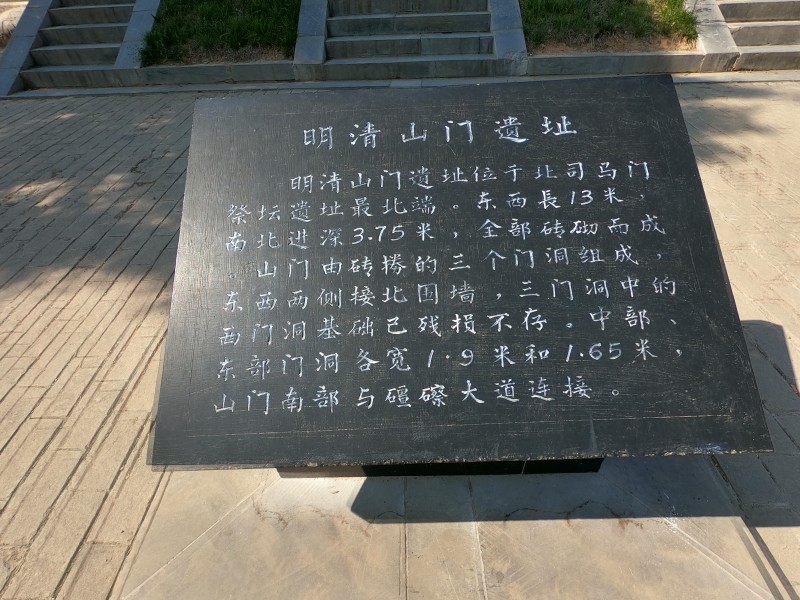 明清山门遗址
明清山门遗址位于北司马门
祭坛遗址最北端。东西長13米，
南北进深3.75米，全部砖砌而成
。山门由砖搒的三个门洞组成，
东西两侧接北围墙，三门洞中的
西门洞基础已残损不存。中部、
东部门洞各宽1.9米和1.65米，
山门南部与礓礤大道连接。